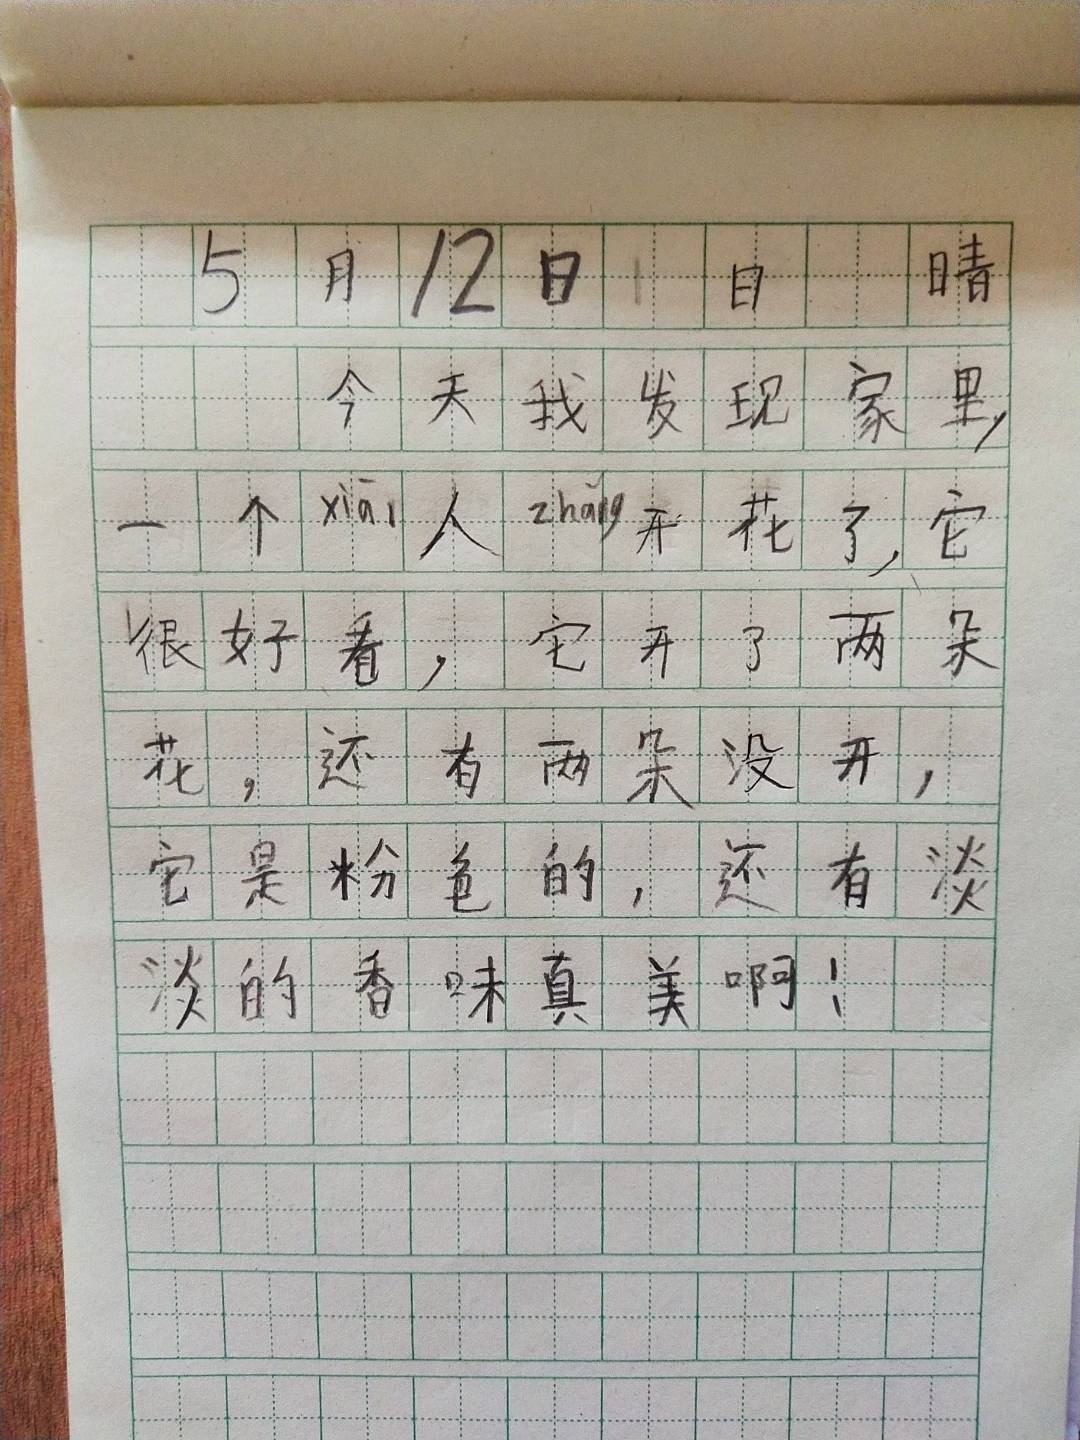 5月12日 日 晴
今天我发现家里,
一个xiān人zhǎng开花了,它
很好看,它开了两朵
花,还有两朵没开,
它是粉色的,还有淡
淡的香味真美啊!